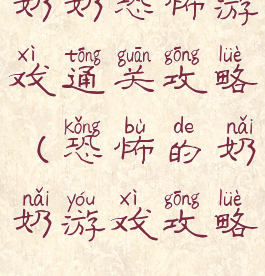 奶奶恐怖游
xì tōng guān gōng lüè
戏通关攻略
kǒng bù de nǎi
（恐怖的奶
nǎi yóu xì gōng lüè
奶游戏攻略